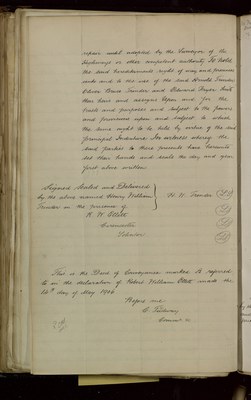 repair until adopted by the Surveyor of the
Highways or other competent authority To hold
the said hereditaments right of way and premises
unto and to the use of the said
Oliver Tander and Edward Hayes
their heirs and assigns Upon and for the
trusts and purposes and subject to the powers
and provisions upon and subject to which
the same ought to be held by virtue of the said
principal Indenture In witness whereof the
said parties to these presents have hereunto
set their hands and seals the day and year
first above written
Signed Sealed and Delivered
by the above named Henry William
in the presence of
H. W.
R. W. Ellett
Cirencester
Solicitor
This is the Deed of Conveyance marked B referred
to in the declaration of Robert William Ellett made the
day of May 1906
Before me
Commr